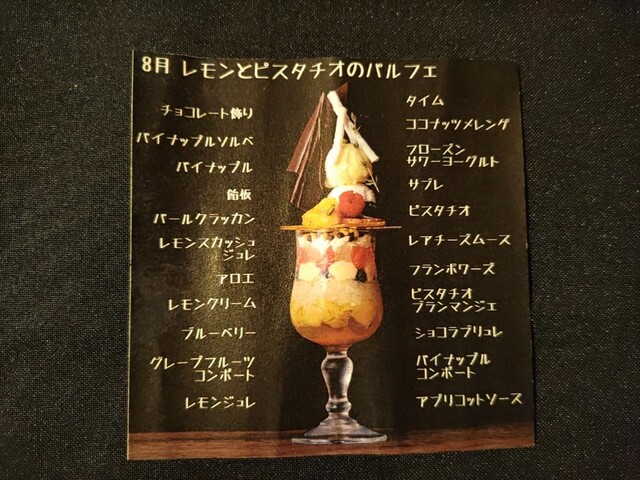 8月 レモンとピスタチオのパルフェ
チョコレート飾り
パイナップルソルベ
パイナップル
飴板
パールクラッカン
レモンスカッシュ
ジュレ
アロエ
レモンクリーム
ブルーベリー
グレープフルーツ
コンポート
レモンジュレ
タイム
ココナッツメレンゲ
フローズン
サワーヨーグルト
サブレ
ピスタチオ
レアチーズムース
フランボワーズ
ピスタチオ
ブランマンジェ
ショコラブリュレ
パイナップル
コンポート
アプリコットソース